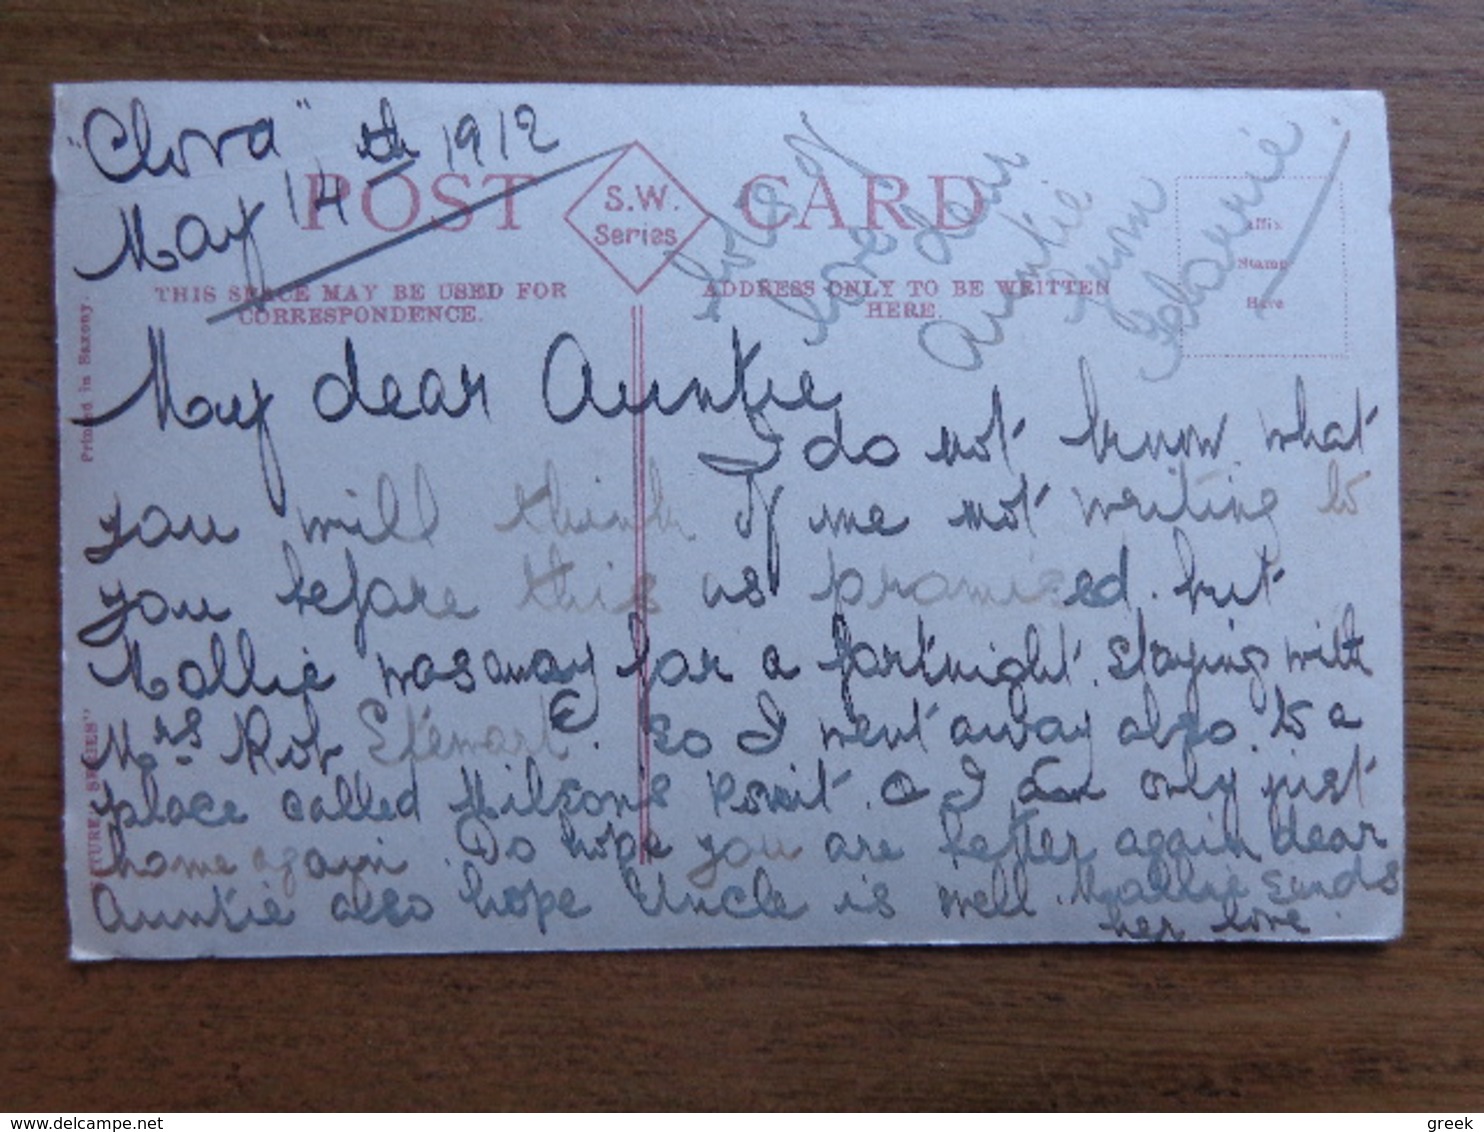 "Clova"
May 14th 1912
POST CARD
S.W.
Series
THIS SPACE MAY BE USED FOR
CORRESPONDENCE.
ADDRESS ONLY TO BE WRITTEN
HERE.
Affix
Stamp
Here
Printed in Saxony.
SERIES"
My dear Auntie
I do not know what
you will think of me not writing to
you before this as promised. but
Mollie was away for a fortnight. staying with
Mrs. Rob Stewart. so I went away also. to a
place called Milson's Point. I am only just
home again. Do hope you are better again dear
Auntie also hope Uncle is well. Mollie sends
her love.
lots of
love dear
Auntie
from
greek